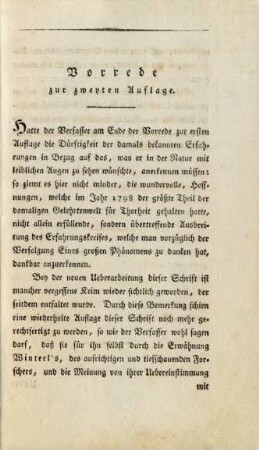 Vorrede
zur zweyten Auflage.
Hatte der Verfasser am Ende der Vorrede zur ersten
Auflage die Dürftigkeit der damals bekannten Erfah-
rungen in Bezug auf das, was er in der Natur mit
leiblichen Augen zu sehen wünschte, anerkennen müssen:
so ziemt es hier nicht minder, die wundervolle, Hoff-
nungen, welche im Jahr 1798 der größte Theil der
damaligen Gelehrtenwelt für Thorheit gehalten hatte,
nicht allein erfüllende, sondern übertreffende Ausbrei-
tung des Erfahrungskreises, welche man vorzüglich der
Verfolgung Eines großen Phänomens zu danken hat,
dankbar anzuerkennen.
Bey der neuen Ueberarbeitung dieser Schrift ist
mancher vergessene Keim wieder sichtlich geworden, der
seitdem entfaltet wurde. Durch diese Bemerkung schien
eine wiederholte Auflage dieser Schrift noch mehr ge-
rechtfertigt zu werden, so wie der Verfasser wohl sagen
darf, daß sie für ihn selbst durch die Erwähnung
Winterl's, des aufrichtigen und tiefschauenden For-
schers, und die Meinung von ihrer Uebereinstimmung
mit